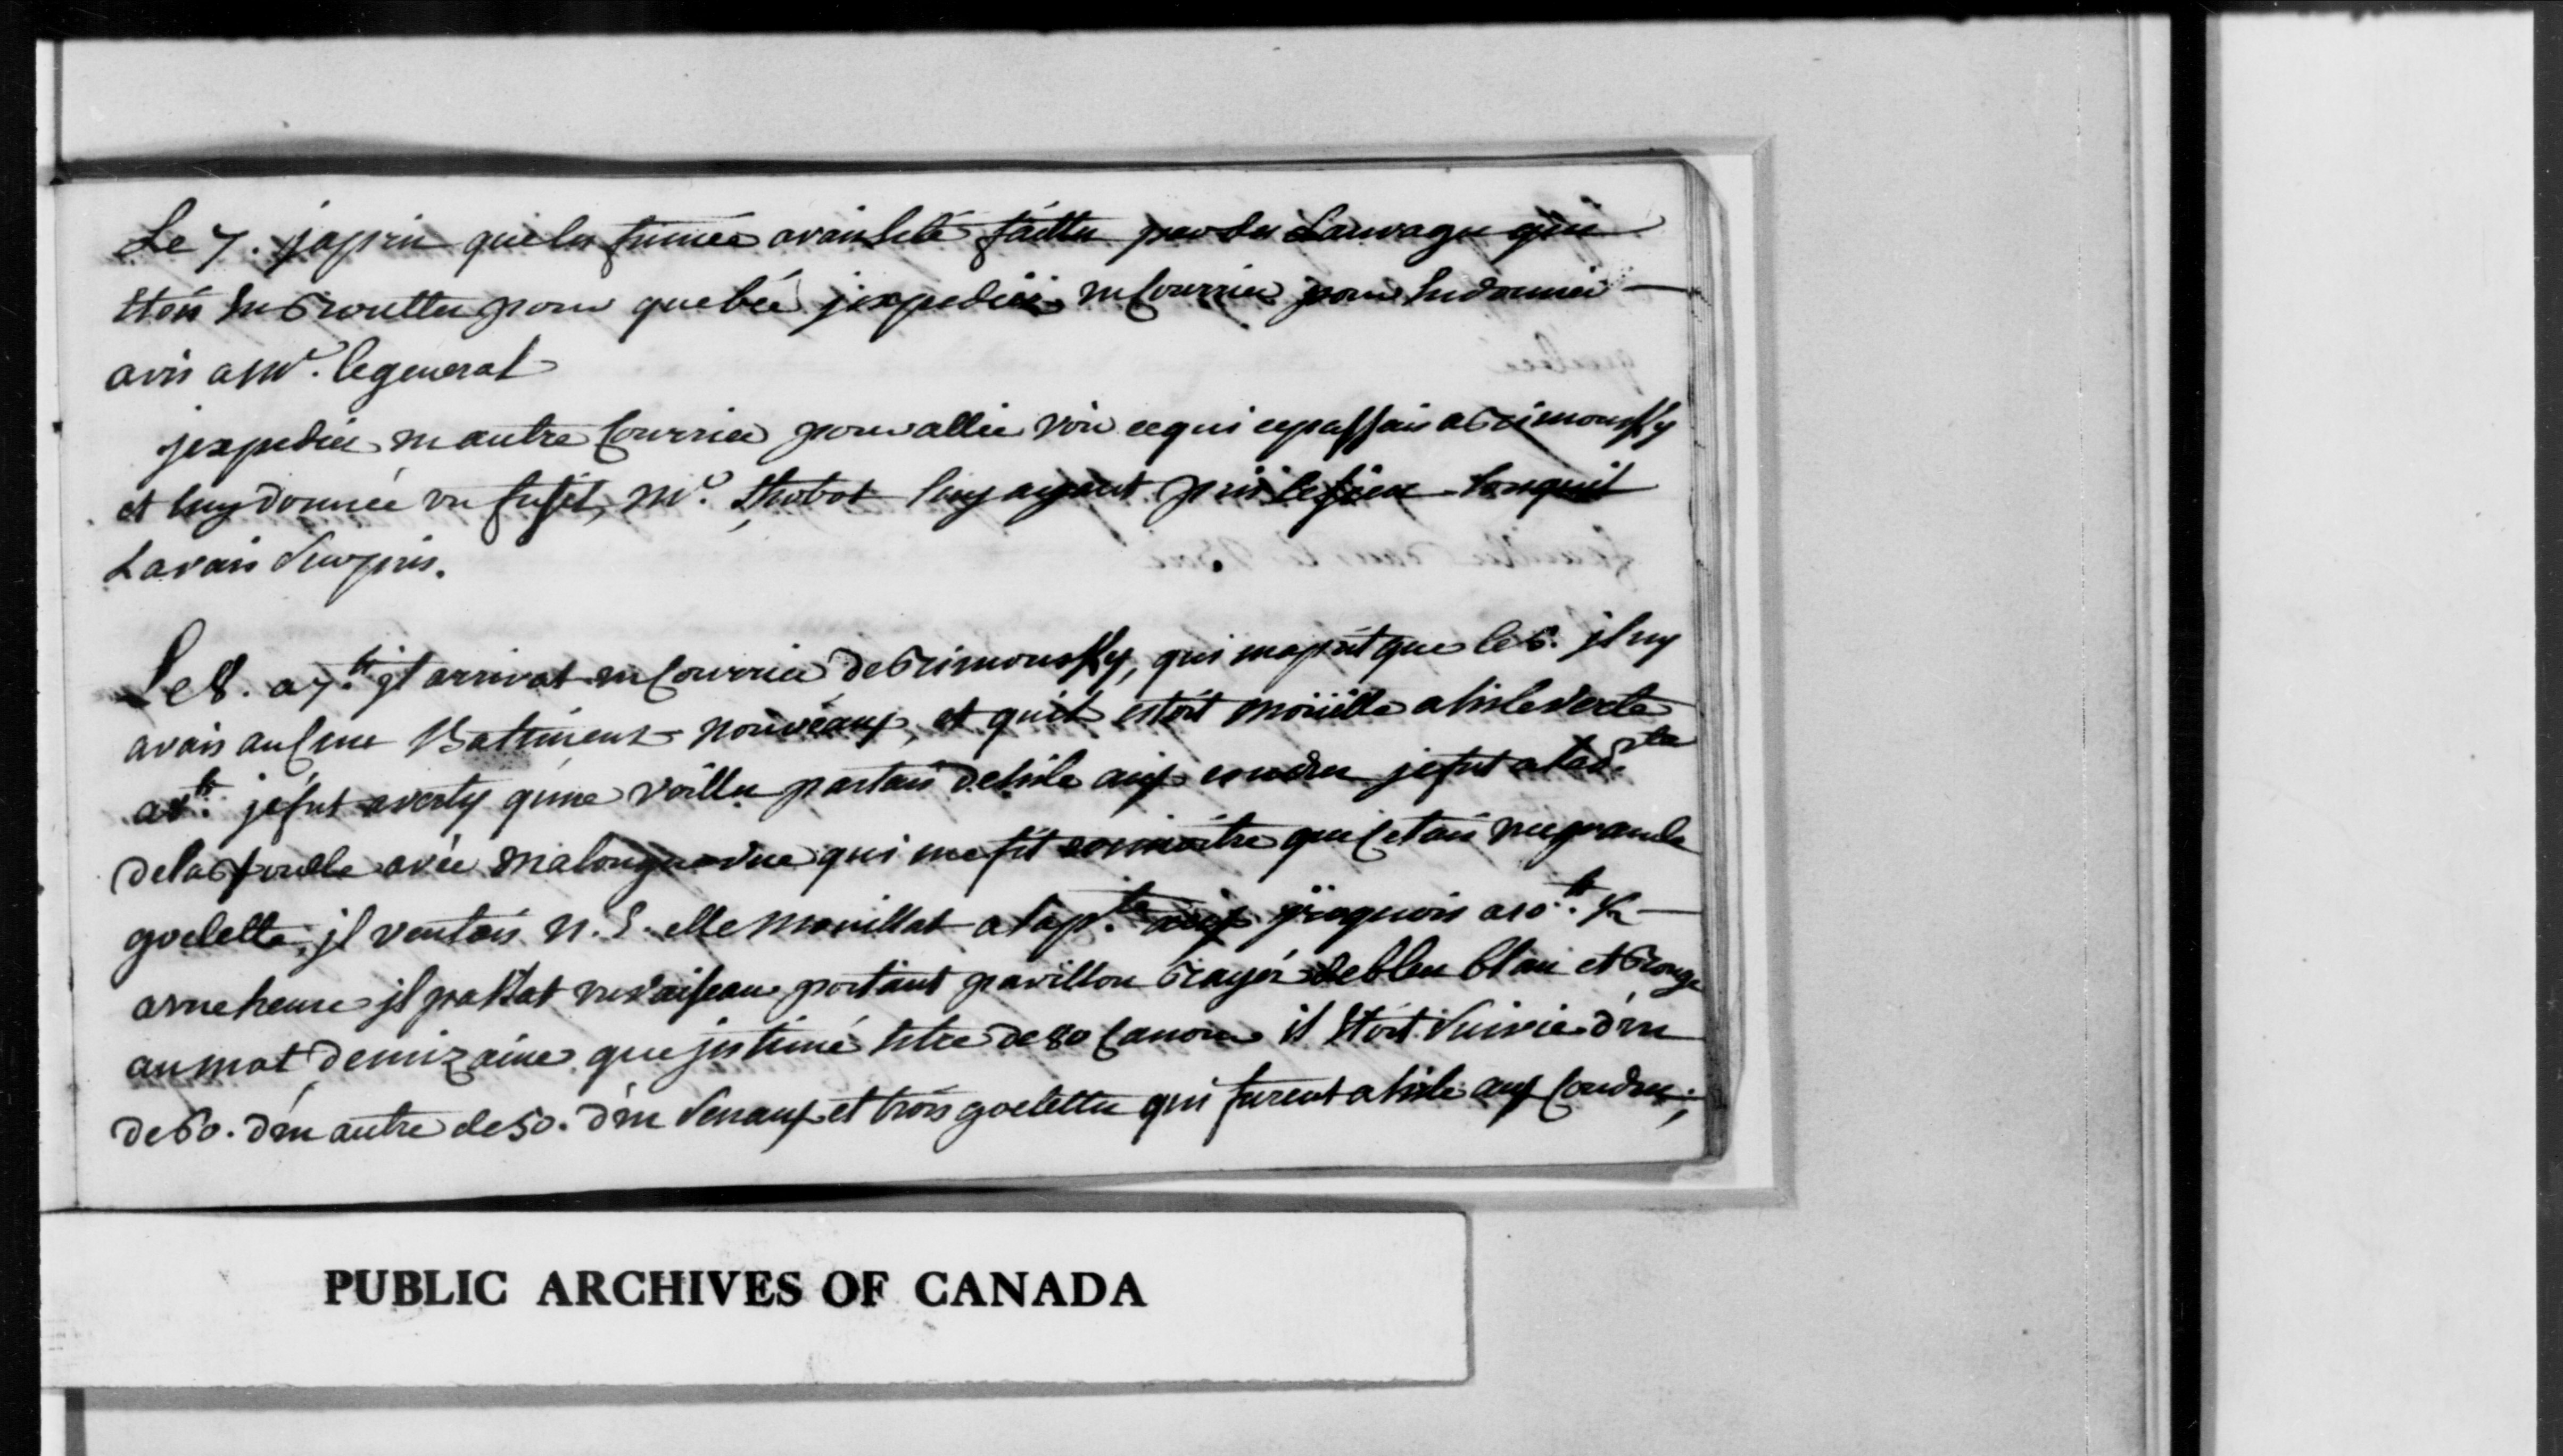 Le 7. japris que les fumée avais Eté faittes par des Sauvages qui
Etois En Routtes pour quebéc jexpediés un Courrier pour En donner
avis a Mr. le general
jexpediés un autre Courrier pour allier voir ce qui cepassais a Rimousky
et luy donnée un fusil, Mr. luy ayant pris le sien Lorsquil
Lavais Surpris.
Le 8. a 7.h jl arrivat un Courrier de Rimousky, qui maprit que le 6. jl ny
avais aucune Battiments nouveaux, et quil estoit moüille a lisle verte
a 8h. je fut averty qune voilles partais de lisle aux coudres je fut a la
de la avéc ma longue vue qui me fit connoitre que Cetais une grande
goelette, jl ventois N. E. elle mouillat a la pte. aux jroquois a 10.h ½
a une heure jl passat un vaisseau portant pavillon Rayés de bleu blan et Rouge
au mat de mizaine que jestimé Etre de 80 Canons il Etoit Suivie d'un
de 60. d'un autre de 50. d'un Senaux et trois goelettes qui furent a lisle aux Coudres;
PUBLIC ARCHIVES OF CANADA